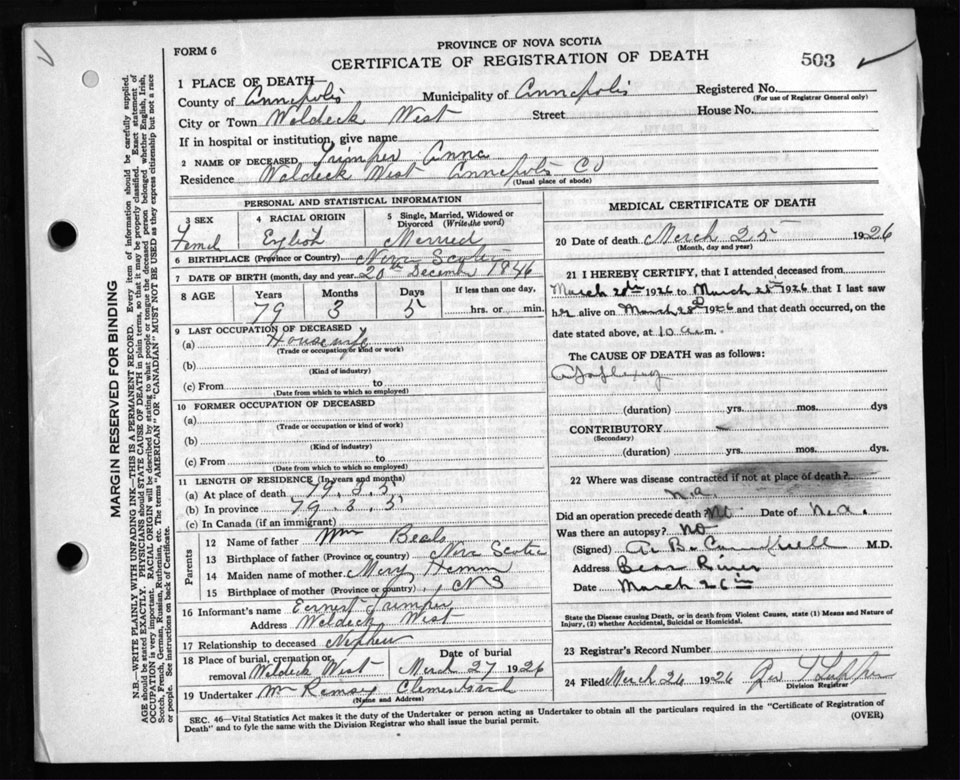 PROVINCE OF NOVA SCOTIA
FORM 6
CERTIFICATE OF REGISTRATION OF DEATH
503
1 PLACE OF DEATH—
County of Annapolis Municipality of Annapolis Registered No.
(For use of Registrar General only)
City or Town Waldeck West Street House No.
If in hospital or institution, give name
2 NAME OF DECEASED Trimper Anna
Residence Waldeck West Annapolis Co
(Usual place of abode)
PERSONAL AND STATISTICAL INFORMATION
3 SEX 4 RACIAL ORIGIN 5 Single, Married, Widowed or Divorced (Write the word)
Femel English Married
6 BIRTHPLACE (Province or Country) Nova Scotia
7 DATE OF BIRTH (month, day and year) 20th December 1846
8 AGE Years Months Days If less than one day,
79 3 5 hrs. or min.
9 LAST OCCUPATION OF DECEASED
(a) Housewife
(Trade or occupation or kind or work)
(b)
(Kind of industry)
(c) From to
(Date from which to which so employed)
10 FORMER OCCUPATION OF DECEASED
(a)
(Trade or occupation or kind or work)
(b)
(Kind of industry)
(c) From to
(Date from which to which so employed)
11 LENGTH OF RESIDENCE (In years and months)
(a) At place of death 79. 3. 5
(b) In province 79. 3. 5
(c) In Canada (if an immigrant)
Parents
12 Name of father Wm Beals
13 Birthplace of father (Province or country) Nova Scotia
14 Maiden name of mother Mary
15 Birthplace of mother (Province or country) NS
16 Informant's name Earnest Trimper
Address Waldeck West
17 Relationship to deceased Nephew
18 Place of burial, cremation or removal Waldeck West Date of burial March 27 1926
19 Undertaker Wm Ramsey Clementsvale
(Name and Address)
MEDICAL CERTIFICATE OF DEATH
20 Date of death March 25 1926
(Month, day and year)
21 I HEREBY CERTIFY, that I attended deceased from
March 20th 1926 to March 25th 1926 that I last saw
her alive on March 1926 and that death occurred, on
the date stated above, at 10 a.m.
The CAUSE OF DEATH was as follows:
Apoplexy
(duration) yrs. mos. dys
CONTRIBUTORY –
(Secondary)
(duration) yrs. mos. dys.
22 Where was disease contracted if not at place of death?
n.a.
Did an operation precede death? No Date of n.a.
Was there an autopsy? No
(Signed) M.D.
Address Bear River
Date March 26th
State the Disease causing Death, or in death from Violent Causes, state (1) Means and Nature of
Injury, (2) whether Accidental, Suicidal or Homicidal.
23 Registrar's Record Number
24 Filed March 26 1926
Division Registrar
SEC. 46—Vital Statistics Act makes it the duty of the Undertaker or person acting as Undertaker to obtain all the particulars required in the "Certificate of Registration of
Death" and to fyle the same with the Division Registrar who shall issue the burial permit.
(OVER)
MARGIN RESERVED FOR BINDING
N.B.—WRITE PLAINLY WITH UNFADING INK—THIS IS A PERMANENT RECORD. Every item of information should be carefully supplied.
AGE should be stated EXACTLY. PHYSICIANS should STATE CAUSE OF DEATH in plain terms, so that it may be properly classified. Exact statement of
OCCUPATION is very important. RACIAL ORIGIN will be described by stating to what people or tongue the deceased person belonged whether English, Irish,
Scotch, French, German, Russian, Ruthenian, etc. The terms "AMERICAN" OR "CANADIAN" MUST NOT BE USED as they express citizenship but not a race
or people. See instructions on back of Certificate.